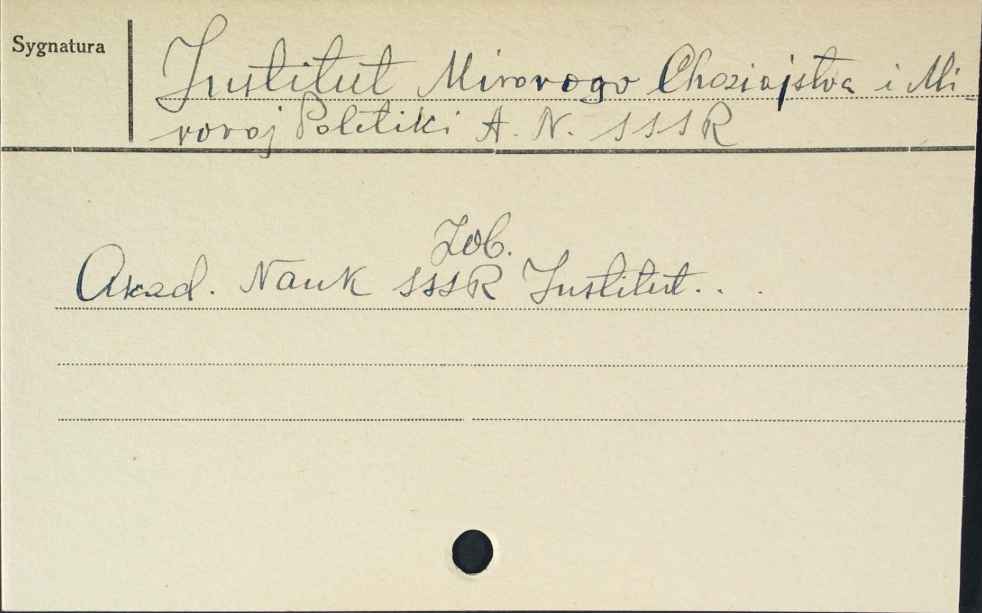 Sygnatura
Institut Mirovogo Choziajstva i Mi-
rovoj Politiki A. N. SSSR
Zob.
Akad. Nauk SSSR Institut. . .